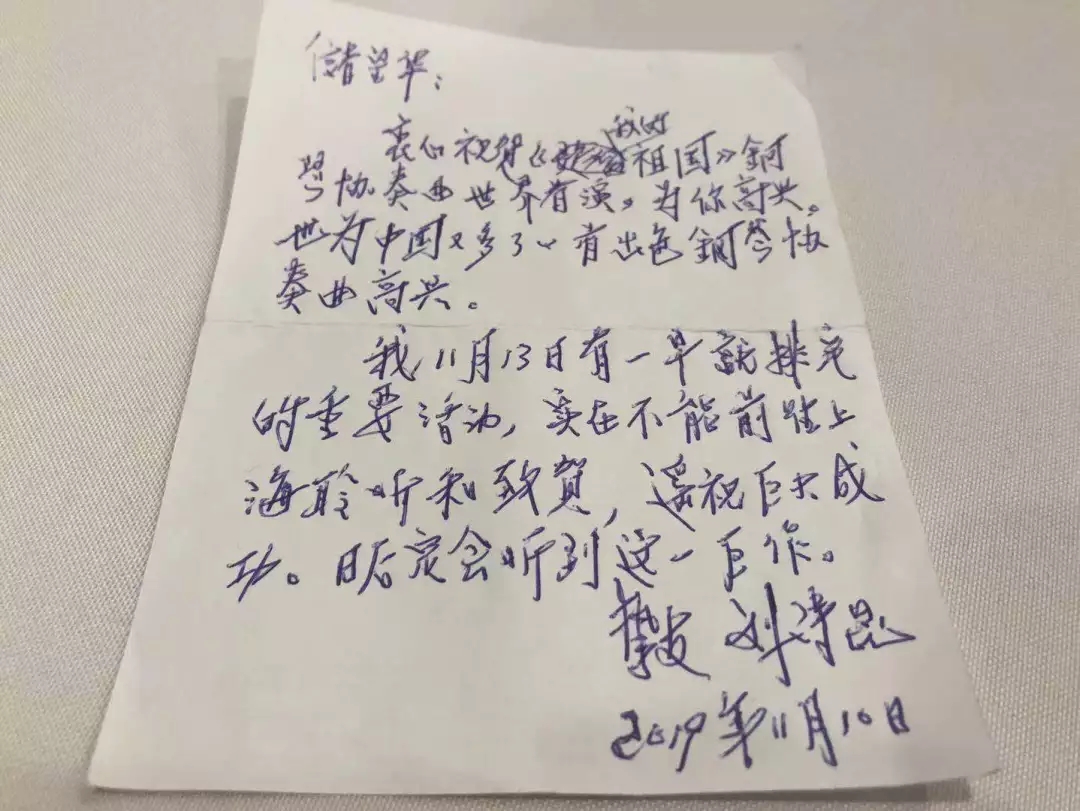 储望华：
衷心祝贺《我的祖国》钢
琴协奏曲世界首演。为你高兴。
也为中国又多了一首出色钢琴协
奏曲高兴。
我11月13日有一早就排定
的重要活动，实在不能前往上
海聆听和致贺，遥祝巨大成
功。日后定会听到这一巨作。
挚友 刘诗昆
2019年11月10日